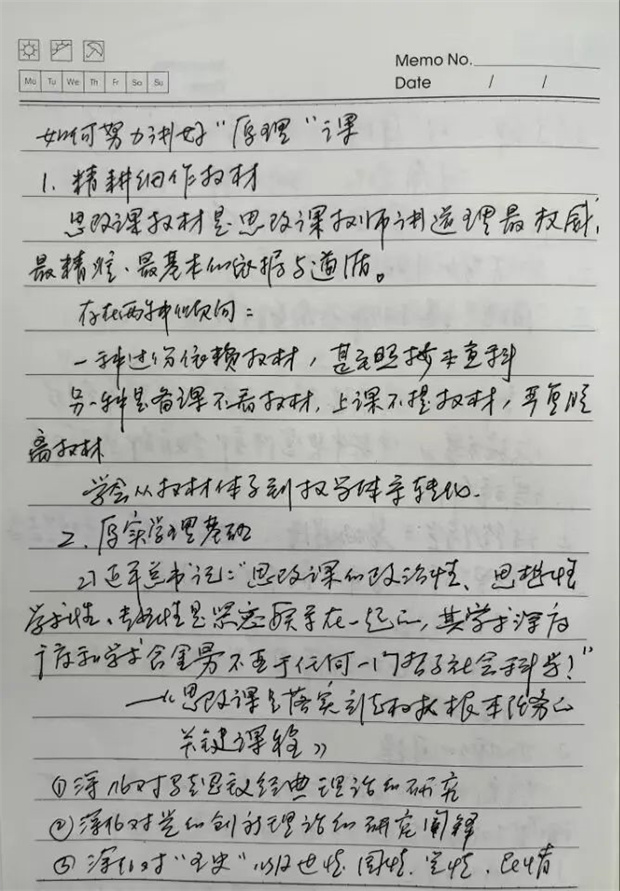 Memo No.
Mo Tu We Th Fr Sa Su
Date / /
如何努力讲好“原理”课
1. 精耕细作教材
思政课教材是思政课教师讲道理最权威,
最精准、最基本的依据与遵循。
存在两种倾向:
一种过份依赖教材, 甚至照搬本宣科
另一种是备课不看教材, 上课不提教材, 严重脱
离教材
学会从教材体系到教学体系转化.
2. 厚实学理基础
习近平总书记:“思政课的政治性、思想性
学术性、专业性是紧密联系在一起的, 其学术深度
广度和学术含金量不亚于任何一门哲学社会科学!”
—《思政课是落实立德树人根本任务的
关键课程》
①深化对马克思主义经典理论的研究
②深化对党的创新理论的研究阐释
③深化对“四史”以及世情、国情、党情、民情